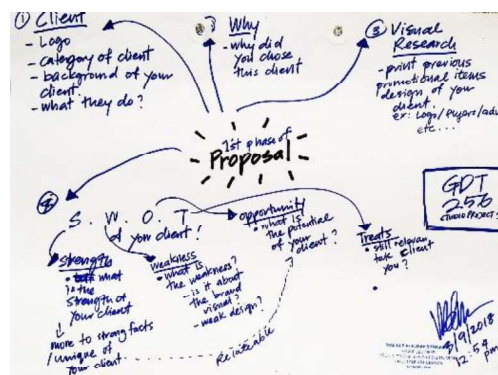 ① Client
- Logo
- category of client
- background of your
client.
- what they do?
Why
- why did
you chose
this client
③ Visual
Research
- print previous
promotional items
design of your
client.
ex: Logo/flyers/adv
etc....
1st phase of
Proposal
GDT
256
STUDIO PROJECT
④
S. W. O. T
of your client!
strength
what
is the
strength of
your client
↓
more to strong facts
/unique of
your client
weakness
• what is
the weakness?
- is it about
the brand
visual?
- weak design?
opportunity
• what is
the potential
of your
client?
Treats
• still relevant
take client
you?
Relatable
3/9/2018
12:54
pm